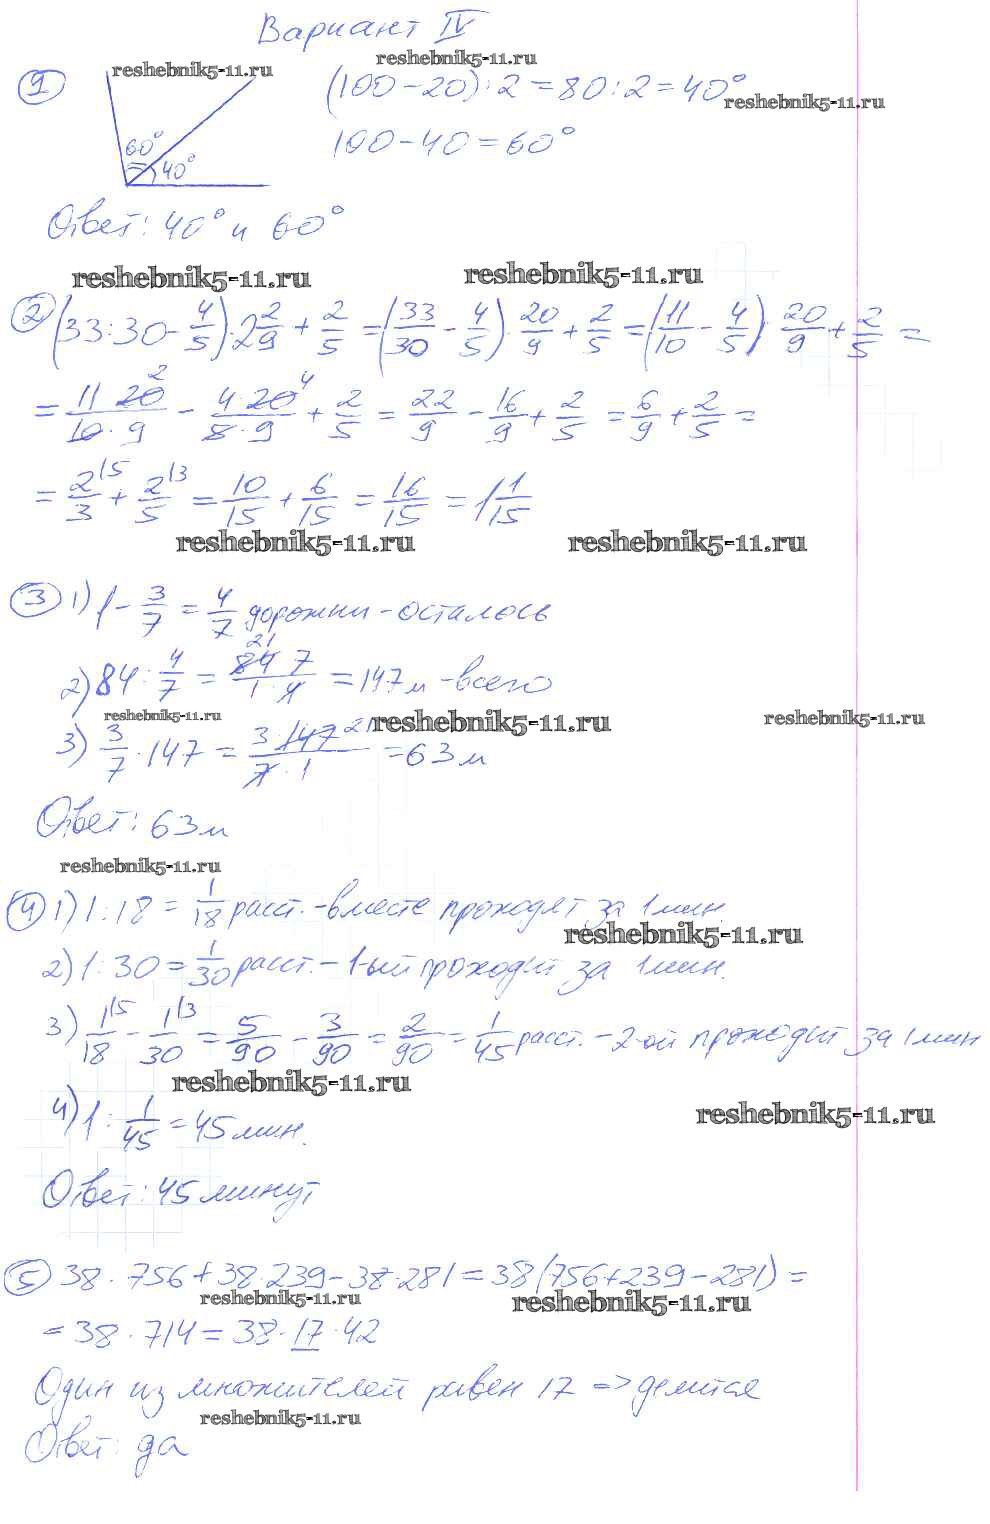 Вариант IV
reshebnik5-11.ru
reshebnik5-11.ru
1 (100 - 20) : 2 = 80 : 2 = 40°
reshebnik5-11.ru
100 - 40 = 60°
60°
40°
Ответ: 40° и 60°
reshebnik5-11.ru reshebnik5-11.ru
2 (33:30 - 4/5) · 2 2/9 + 2/5 = (33/30 - 4/5) · 20/9 + 2/5 = (11/10 - 4/5) · 20/9 + 2/5 =
= 11·20 2/10·9 - 4·20 4/5·9 + 2/5 = 22/9 - 16/9 + 2/5 = 6/9 + 2/5 =
= 2/3 |5 + 2/5 |3 = 10/15 + 6/15 = 16/15 = 1 1/15
reshebnik5-11.ru reshebnik5-11.ru
3 1) 1 - 3/7 = 4/7 дорожки - осталось
2) 84 : 4/7 = 84 21 · 7/1 · 4 = 147 м - всего
reshebnik5-11.ru reshebnik5-11.ru reshebnik5-11.ru
3) 3/7 · 147 = 3 · 147 21/7 · 1 = 63 м
Ответ: 63 м
reshebnik5-11.ru
4 1) 1 : 18 = 1/18 расст. - вместе проходят за 1 мин.
reshebnik5-11.ru
2) 1 : 30 = 1/30 расст. - 1-ый проходит за 1 мин.
3) 1/18 |5 - 1/30 |3 = 5/90 - 3/90 = 2/90 = 1/45 расст. - 2-ой проходит за 1 мин
reshebnik5-11.ru
4) 1 : 1/45 = 45 мин.
reshebnik5-11.ru
Ответ: 45 минут
5 38 · 756 + 38 · 239 - 38 · 281 = 38 (756 + 239 - 281) =
reshebnik5-11.ru reshebnik5-11.ru
= 38 · 714 = 38 · 17 · 42
Один из множителей равен 17 => делится
reshebnik5-11.ru
Ответ: да